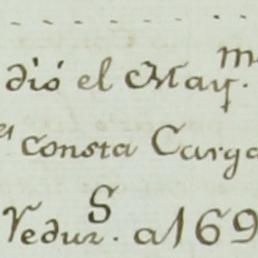 dió el May.ᵐ
consta Carga
Vedur.ˢ a 169